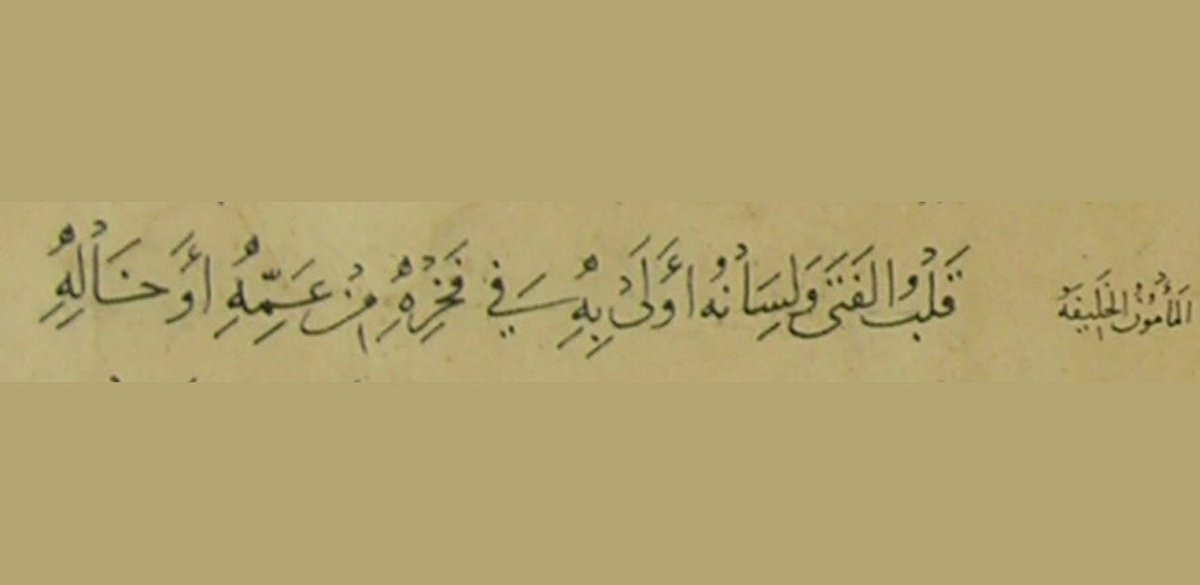 المأمون الخليفة قَلْبُ الفَتَى وَلِسَانُهُ أَوْلَى بِهِ في فَخْرِهِ مِنْ عَمِّهِ أَوْ خَالِهِ